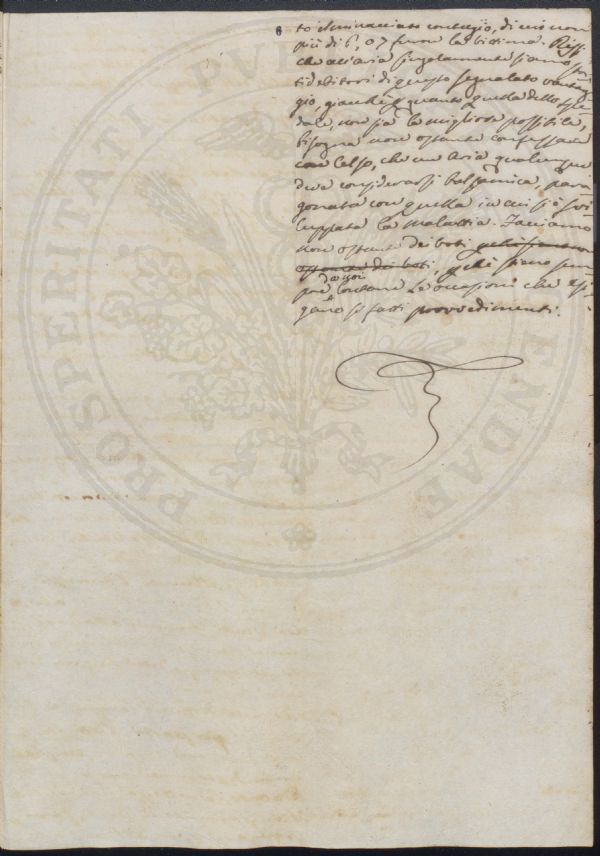 6
to il minacciato contagio, di cui non
più di 6, o 7 furon le vittime.
che all'aria singolarmente siamo
ti debitori di questo segnalato vantag-
gio, giacchè quanto quella dello
dale, non sia la migliore possibile,
bisogna non ostante confessare
con Celso, che un Aria qualunque
deve considerarsi balsamica, para
gonata con quella in cui si è svi-
luppata la Malattia. Facciamo
non ostante dei voti
ostante dei voti, che siano sem-
da noi
pre lontane le occasioni che esi-
gano sì fatti provvedimenti.
PROSPERITATI PUBLICAE AUGENDAE